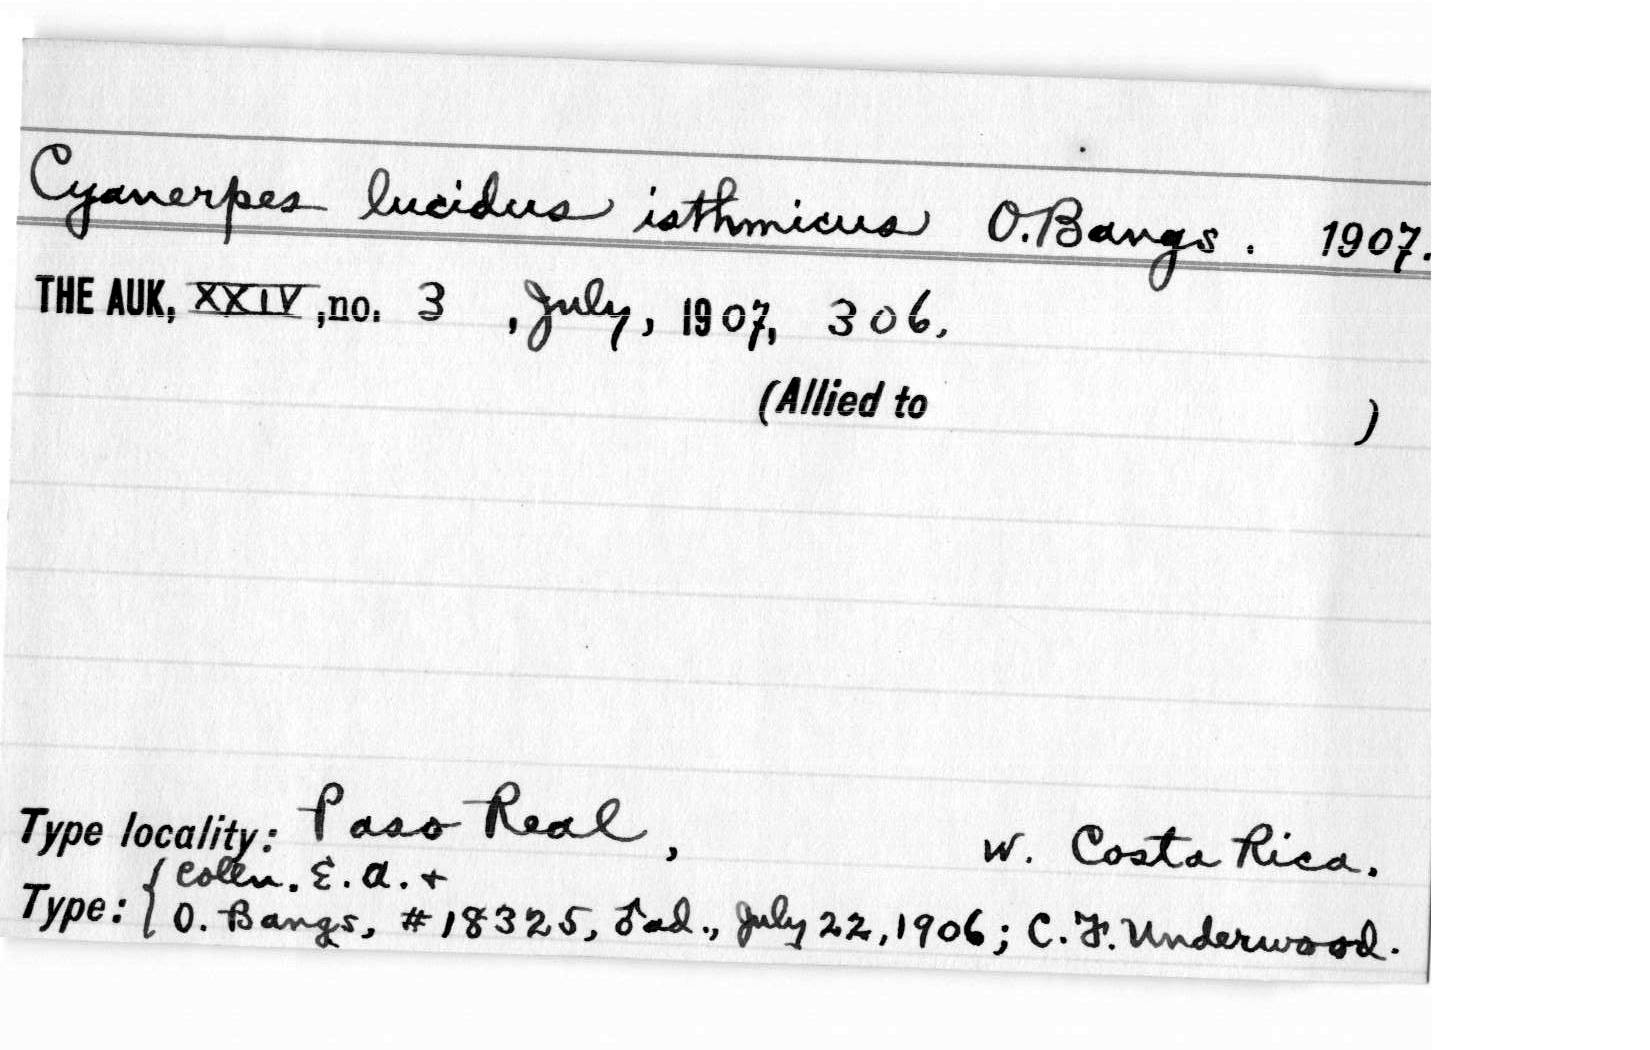 Cyanerpes lucidus isthmicus O. Bangs. 1907.
THE AUK, XXIV, no. 3, July, 1907, 306.
(Allied to )
Type locality: Paso Real, W. Costa Rica.
Type: { Colln. E. A. +
O. Bangs, #18325, ♂ ad., July 22, 1906; C. F. Underwood.